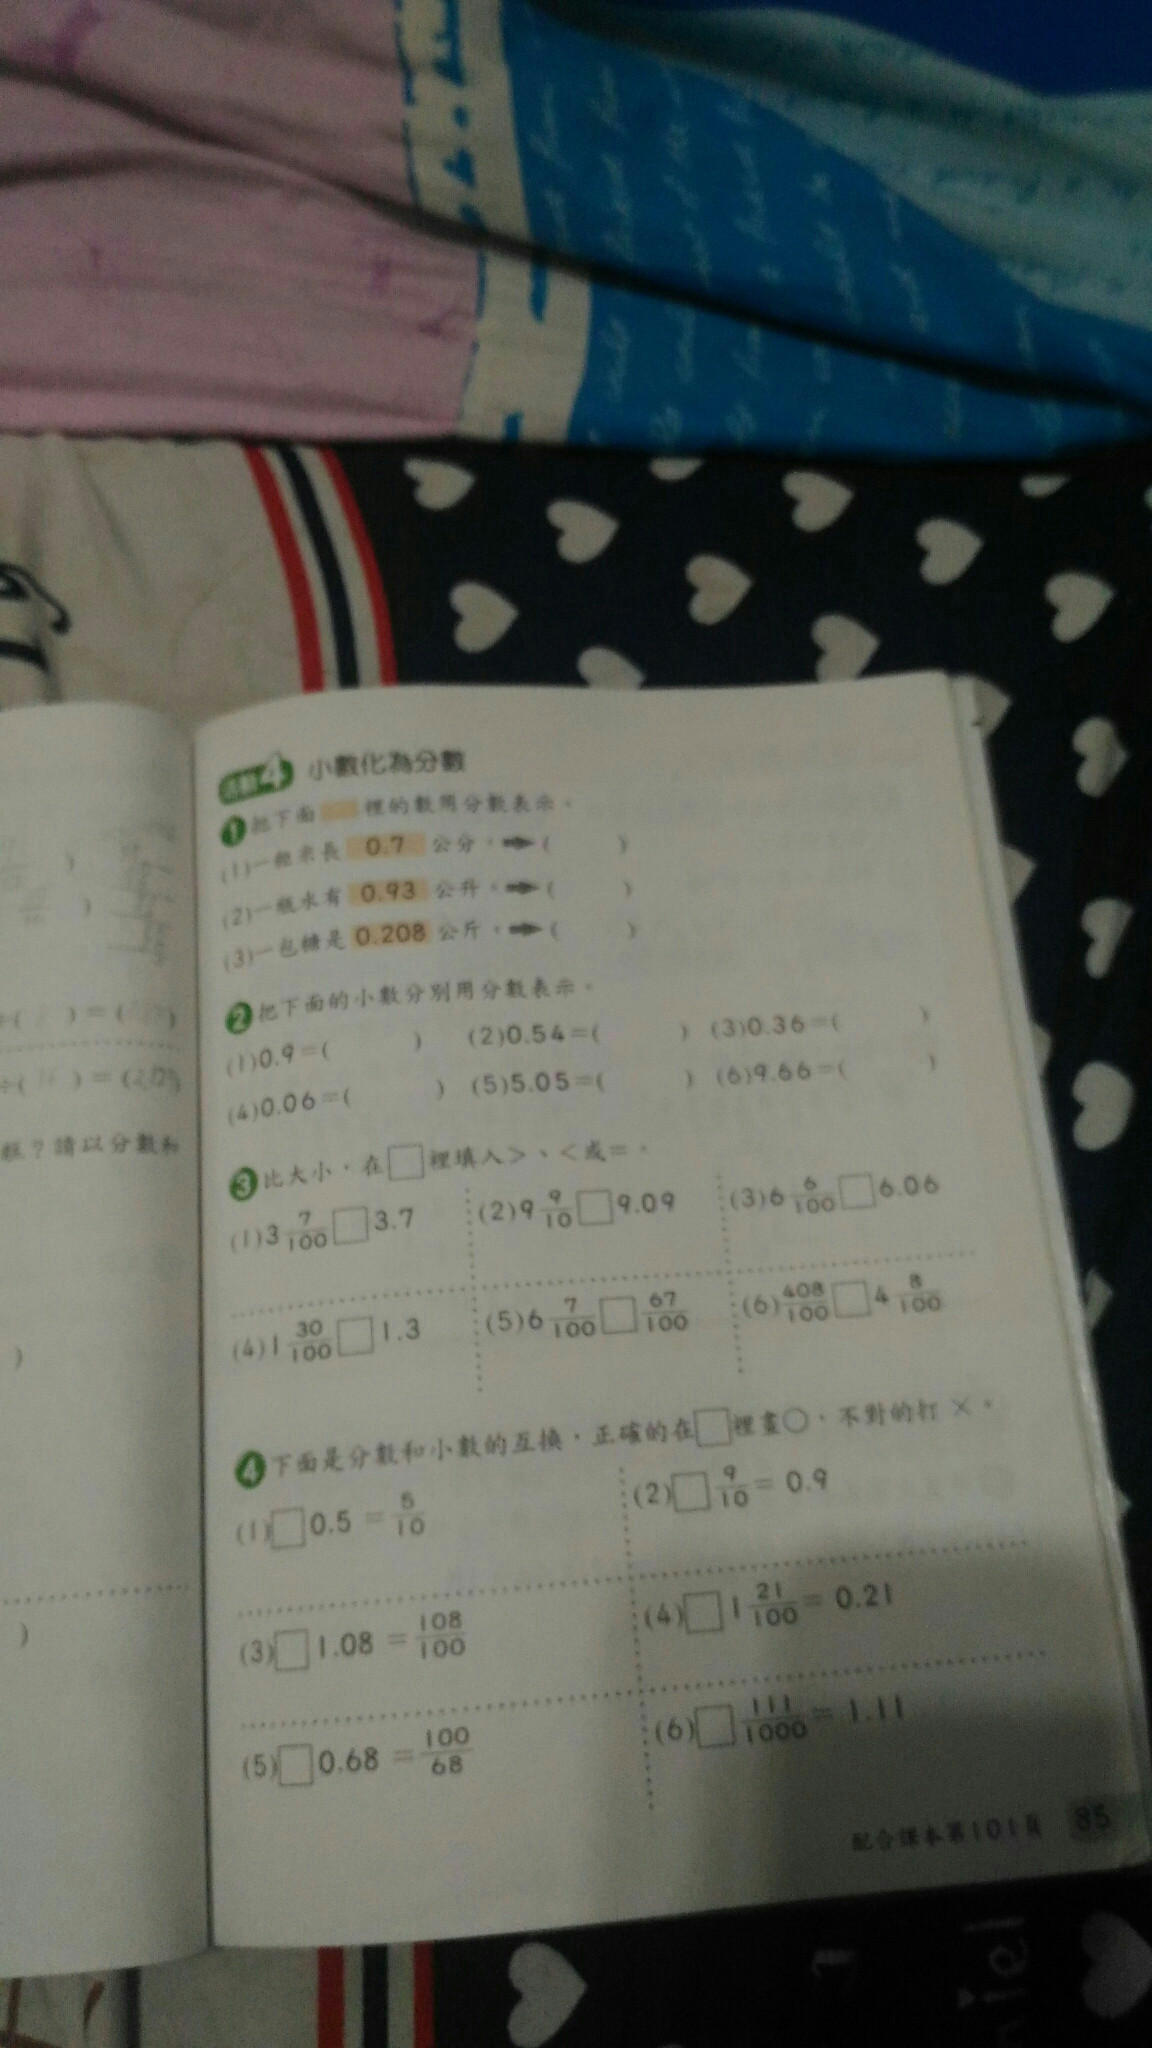 活動4 小數化為分數
1 把下面 裡的數用分數表示。
(1)一粒米長 0.7 公分。➡( )
(2)一瓶水有 0.93 公升。➡( )
(3)一包糖是 0.208 公斤。➡( )
2 把下面的小數分別用分數表示。
(1)0.9=( ) (2)0.54=( ) (3)0.36=( )
(4)0.06=( ) (5)5.05=( ) (6)9.66=( )
3 比大小,在□裡填入>、<或=。
(1)3 7/100 □ 3.7 (2)9 9/10 □ 9.09 (3)6 6/100 □ 6.06
(4)1 30/100 □ 1.3 (5)6 7/100 □ 67/100 (6)408/100 □ 4 8/100
4 下面是分數和小數的互換,正確的在□裡畫○,不對的打×。
(1)□ 0.5 = 5/10 (2)□ 9/10 = 0.9
(3)□ 1.08 = 108/100 (4)□ 1 21/100 = 0.21
(5)□ 0.68 = 100/68 (6)□ 111/1000 = 1.11
配合課本第101頁 85
?請以分數和